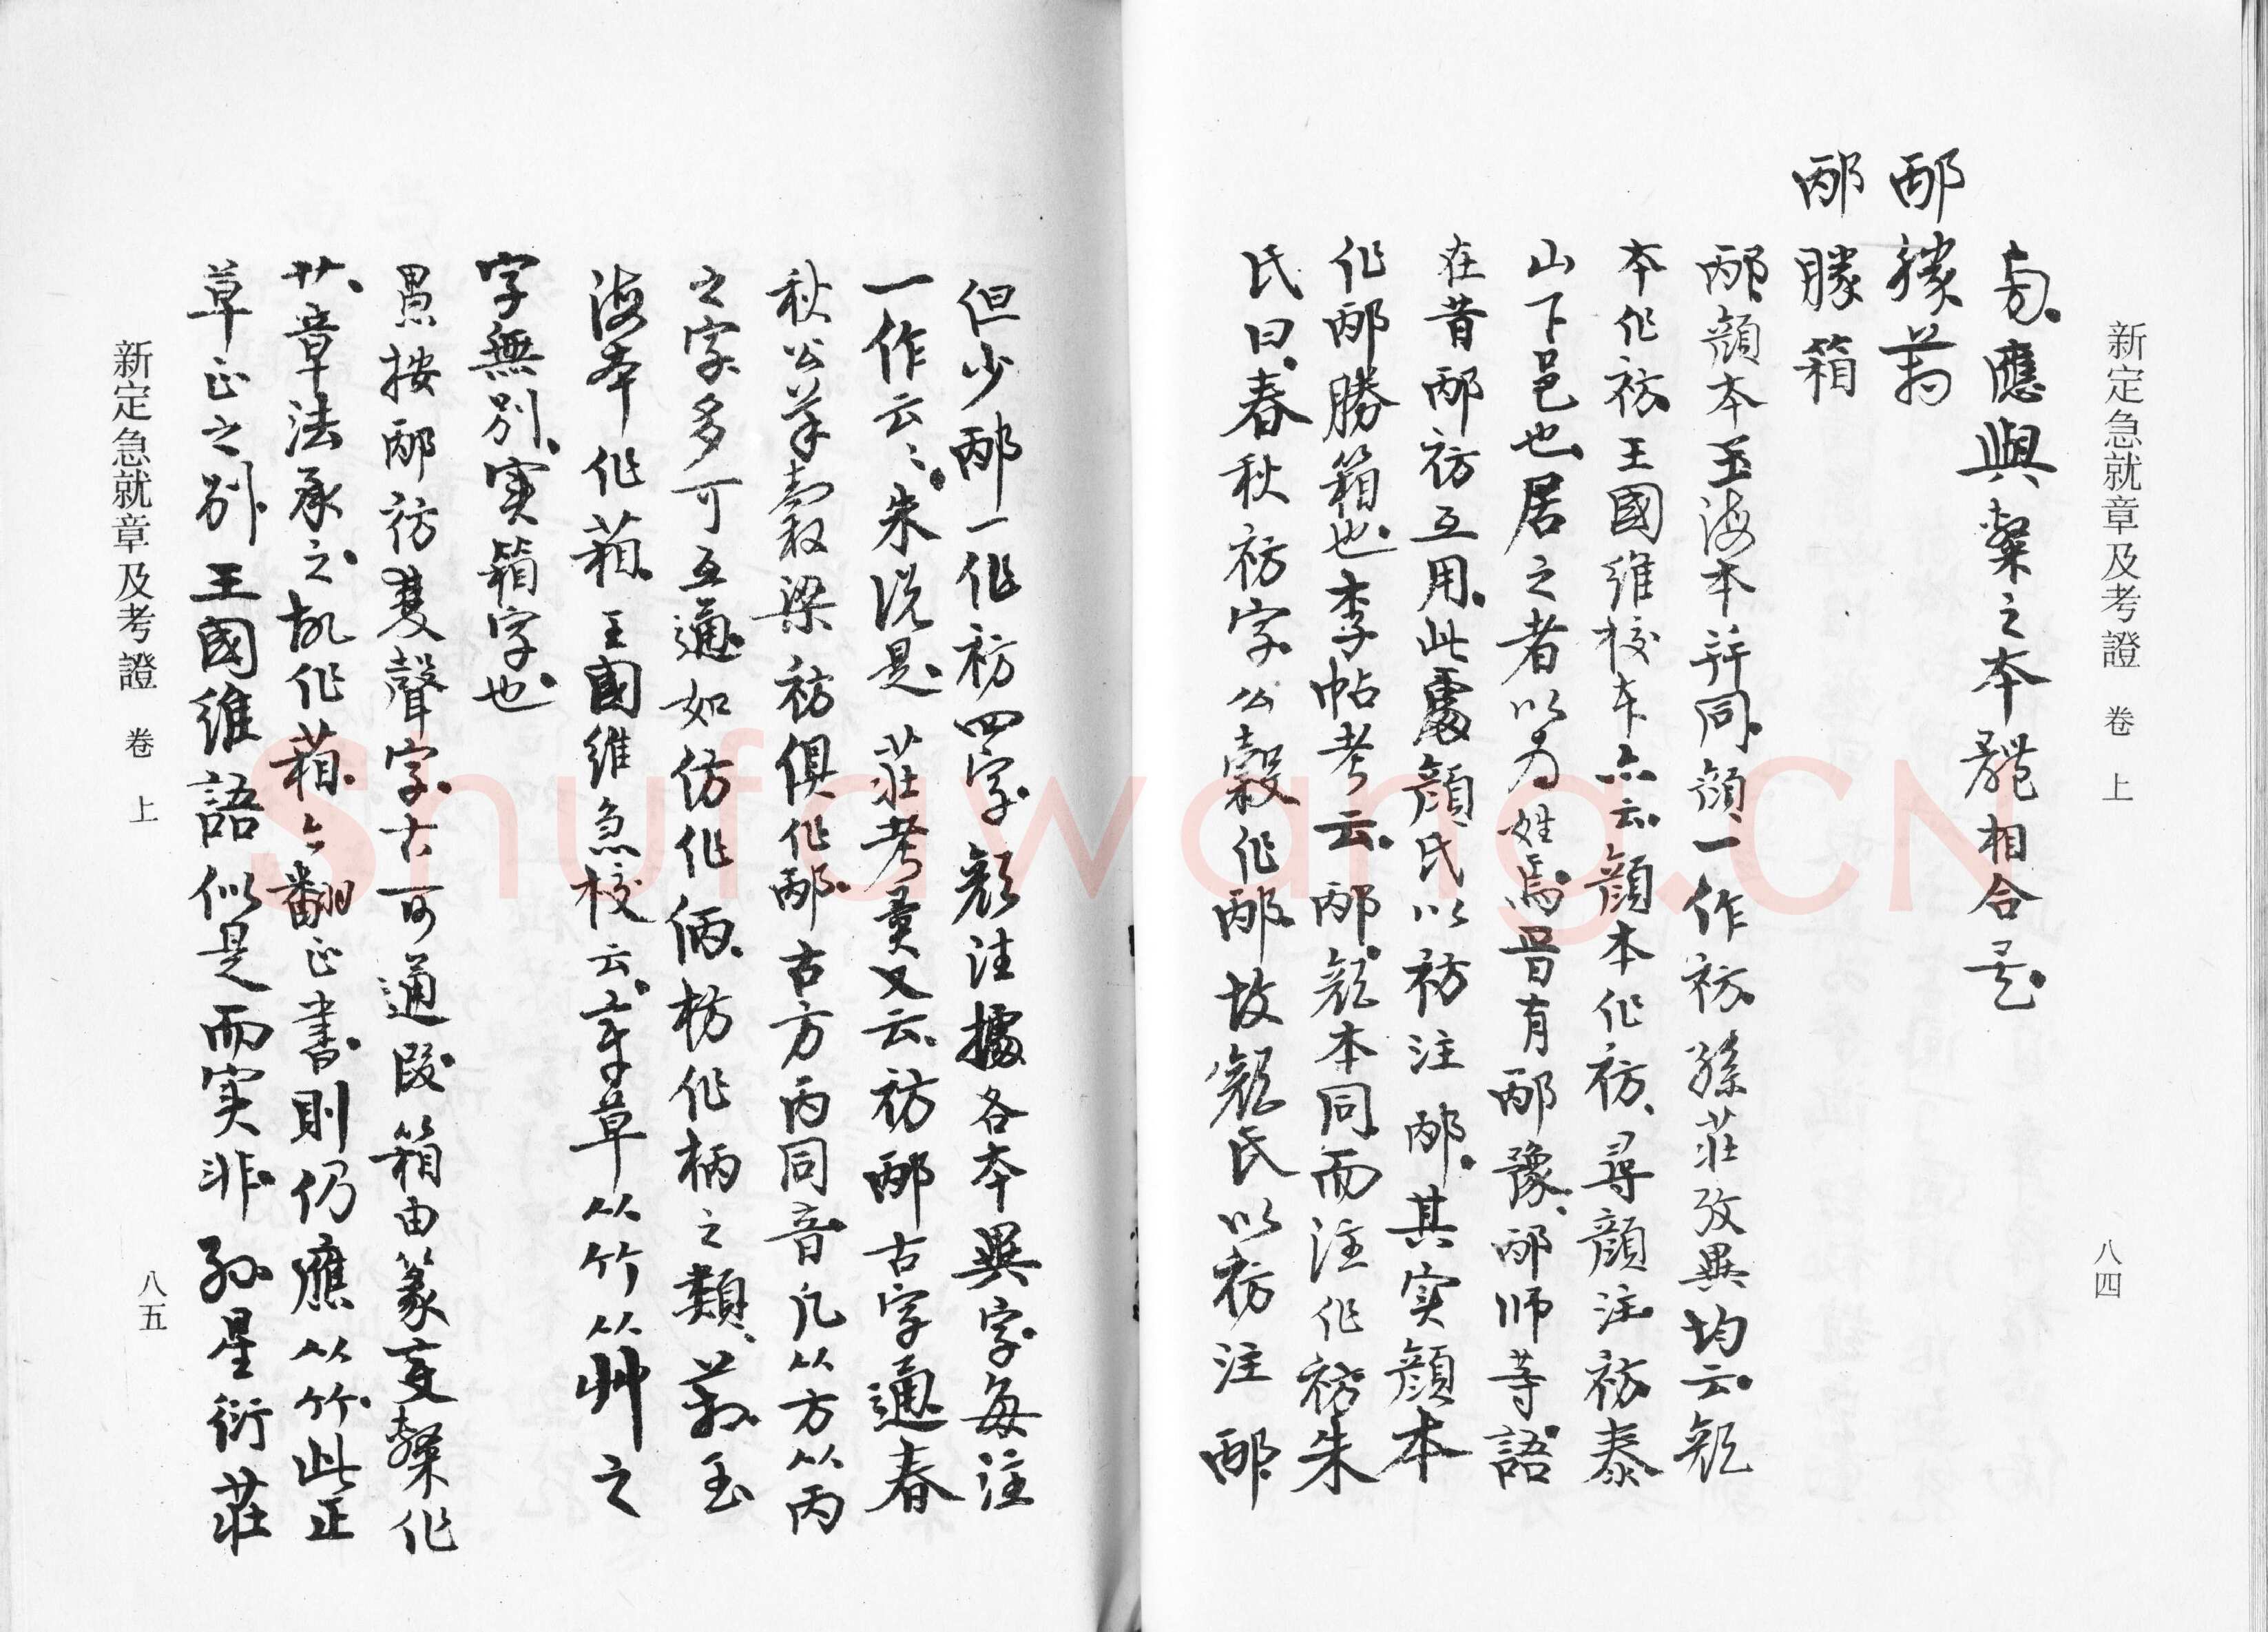 新定急就章及考證 卷上 八四
應與隸之本體相合是
邴勝箱
邴顏本玉海本并同顏一作祊孫莊攷異均云顏
本作祊王國維校本亦云顏本作祊尋顏注祊泰
山下邑也居之者以為姓焉晉有邴豫邴師等語
在昔邴祊互用此處顏氏以祊注邴其實顏本
作邴勝箱也李帖考云邴顏本同而注作祊朱
氏曰春秋祊字公穀作邴故顏氏以祊注邴
但少邴一作祊四字顏注據各本異字每注
一作云云朱說是莊考異又云祊邴古字通春
秋公羊穀梁祊俱作邴古方丙同音凡从方从丙
之字多可互通如仿作㑂枋作柄之類玉
海本作葙王國維急校云章草从竹从艸之
字無別實箱字也
愚按邴祊雙聲字古可通叚箱由篆變隸作
章法承之故作葙今翻正書則仍應从竹此正
草正之別王國維語似是而实非孙星衍莊
新定急就章及考證 卷上 八五
Shufawang.CN